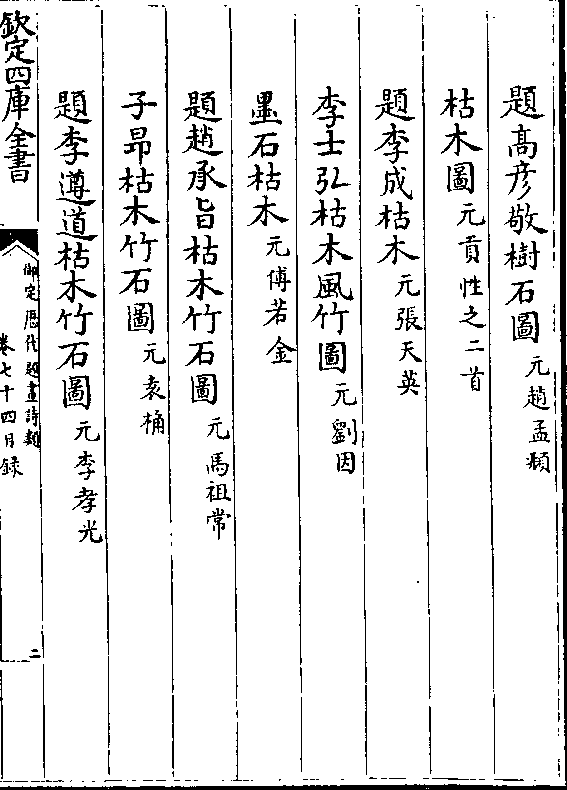 題高彦敬樹石圖 元趙孟頫
枯木圖 元貢性之二首
題李成枯木 元張天英
李士弘枯木風竹圖 元劉因
墨石枯木 元傅若金
題趙承旨枯木竹石圖 元馬祖常
子昻枯木竹石圖 元袁桷
題李遵道枯木竹石圖 元李孝光
欽定四庫全書
御定歴代題畫詩類
卷七十四目録
二